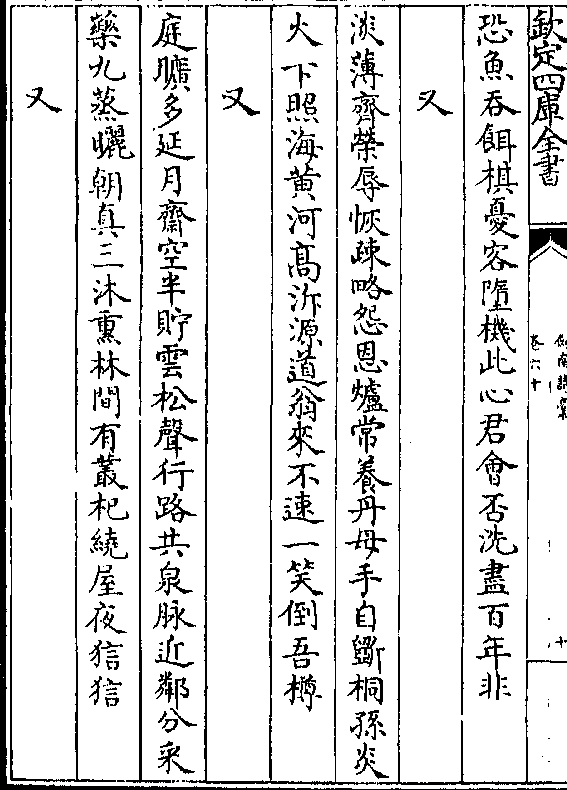 欽定四庫全書
恐魚吞餌棋憂客墮機此心君會否洗盡百年非
又
淡薄齊榮辱恢疎略怨恩爐常養丹母手自斸桐孫炎
火下照海黄河髙泝源道翁來不速一笑倒吾樽
又
庭曠多延月齋空半貯雲松聲行路共泉脉近鄰分采
藥九蒸曬朝真三沐熏林間有叢杞繞屋夜狺狺
又
劍南詩藁
卷六十
十